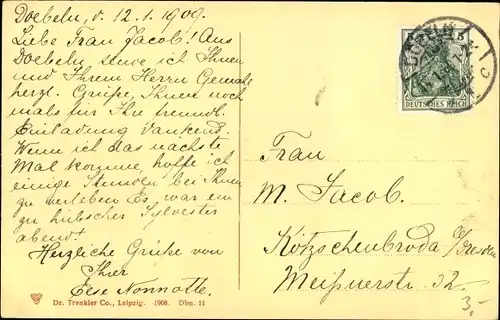 Doebeln, d. 12.1.1909.
Liebe Frau Jacob! Aus
Doebeln sende ich Ihnen
und Ihrem Herrn Gemahl
herzl. Grüße, Ihnen noch
mals für Ihre freundl.
Einladung dankend.
Wenn ich das nächste
Mal komme, hoffe ich
einige Stunden bei Ihnen
zu verleben Es war ein
zu hübscher Sylvester
abend!
Herzliche Grüße von
Ihrer
Else Nonnotte.
Dr. Trenkler Co., Leipzig. 1906. Dbn. 11
DEUTSCHES REICH
Frau
M. Jacob.
Kötzschenbroda b/Dresden
Meißnerstr. 32.
3,-